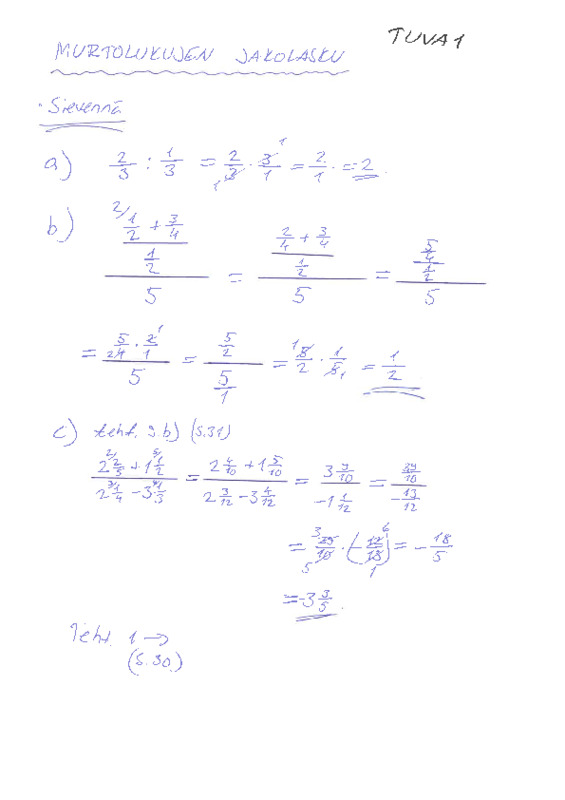 TUVA1
MURTOLUKUJEN JAKOLASKU
Sievennä
a) 2/3 : 1/3 = 2/3 · 3/1 = 2/1 = 2
b) ((1/2 + 3/4)/(1/2))/5 = ((2/4 + 3/4)/(1/2))/5 = ((5/4)/(1/2))/5
= (5/4 · 2/1)/5 = (5/2)/(5/1) = 5/2 · 1/5 = 1/2
c) teht. 9.b) (s.31)
(2 2/5 + 1 1/2)/(2 1/4 - 3 1/3) = (2 4/10 + 1 5/10)/(2 3/12 - 3 4/12) = (3 9/10)/(-1 1/12) = (39/10)/(-13/12)
= 39/10 · (-12/13) = - 18/5
= -3 3/5
Teht. 1 →
(s.30.)